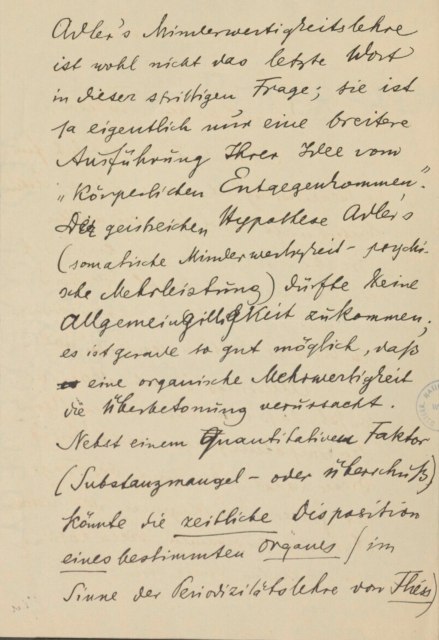 Adler's Minderwertigkeitslehre
ist wohl nicht das letzte Wort
in dieser strittigen Frage; sie ist
ja eigentlich nur eine breitere
Ausführung Ihrer Idee vom
„Körperlichen Entgegenkommen".
Der geistreichen Hypothese Adler's
(somatische Minderwertigkeit - psychi-
sche Mehrleistung) dürfte keine
Allgemeingiltigkeit zukommen;
es ist gerade so gut möglich, daß
eine organische Mehrwertigkeit
die Überbetonung verursacht.
Nebst einem quantitativen Faktor
(Substanzmangel - oder Überschuß)
könnte die zeitliche Disposition
eines bestimmten Organes (im
Sinne der Periodizitätslehre von Fliess)